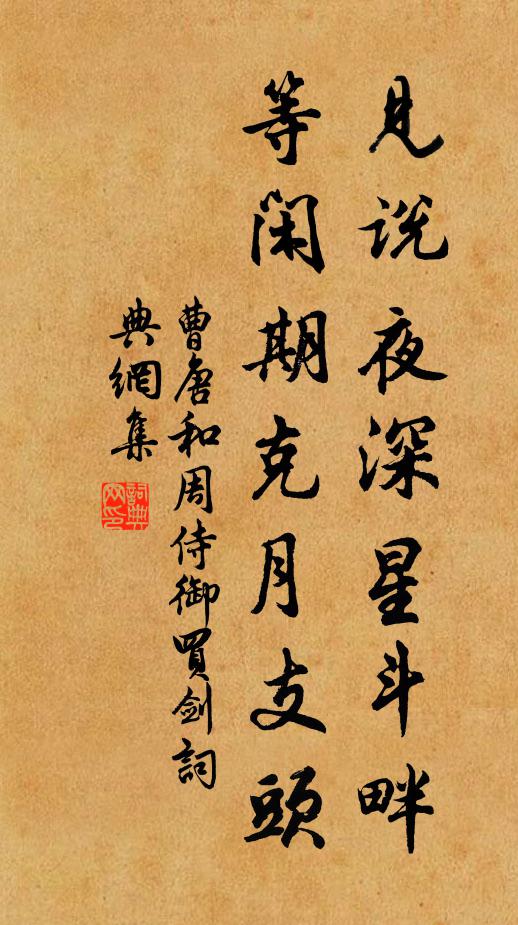 見說夜深星斗畔
等閑期克月支頭
曹唐和周侍御買劍詞
典網集
詞典
网印